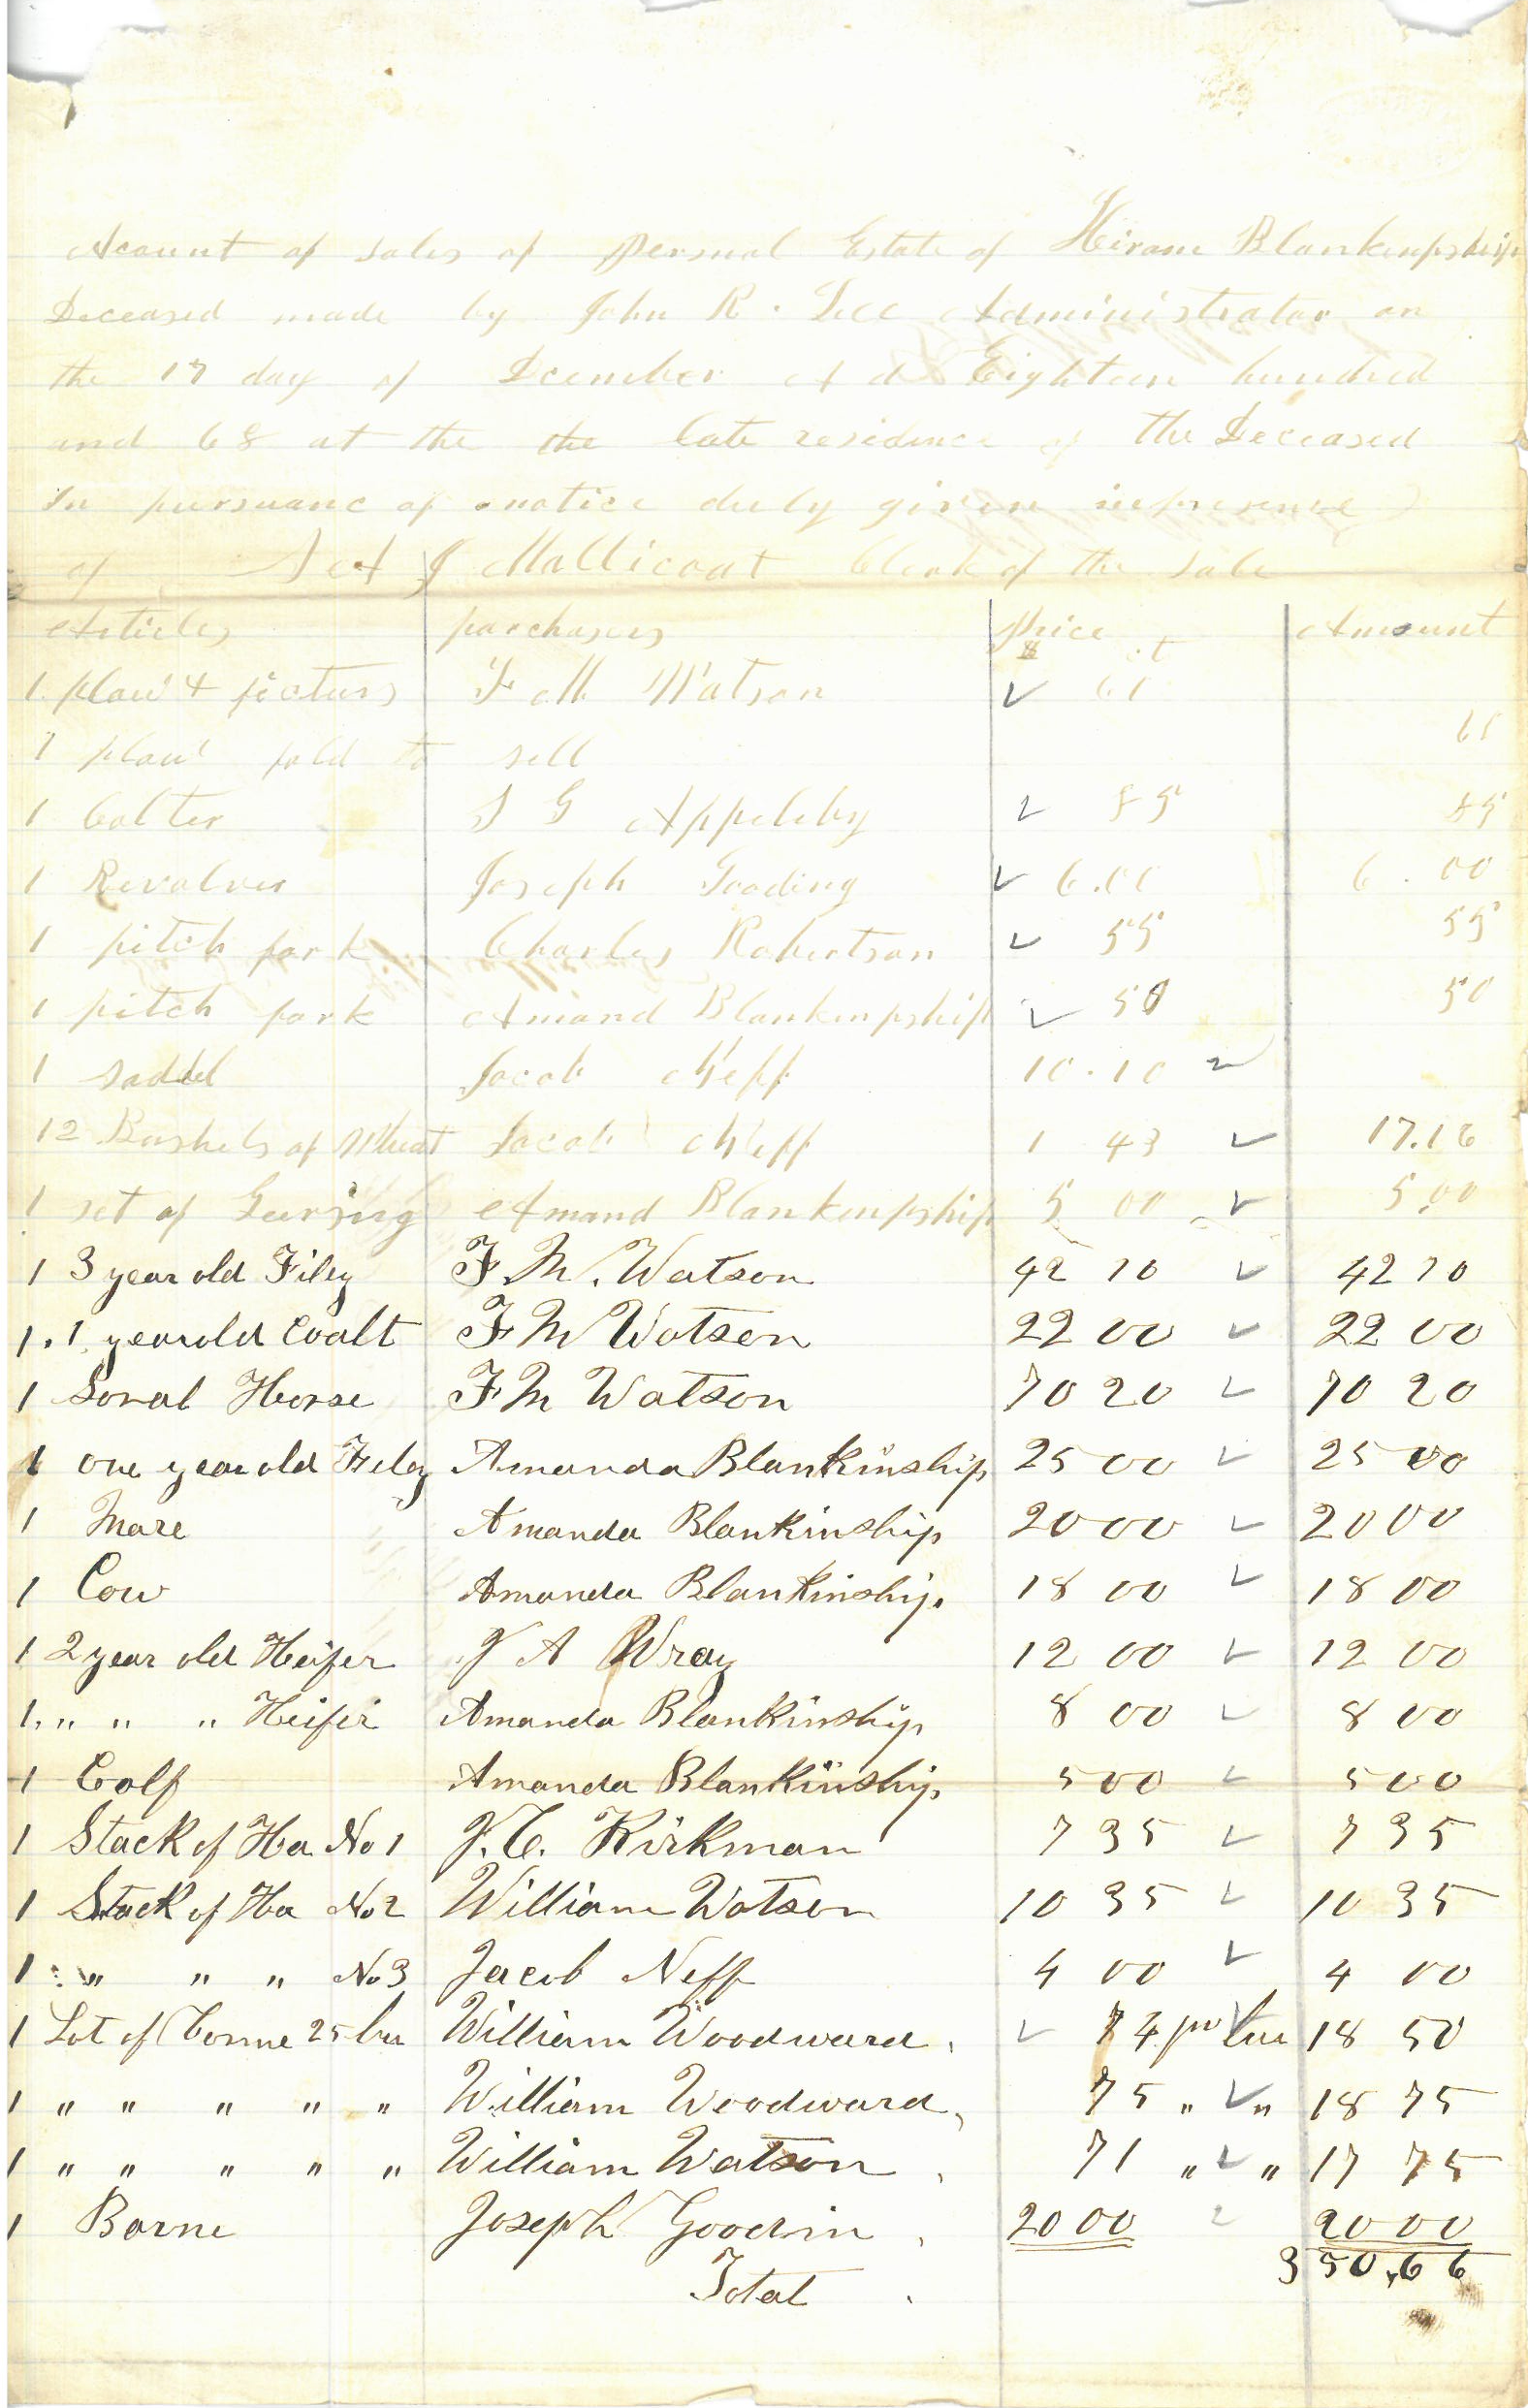 Acount of Sales of Persnal Estate of Hiram Blankenpship
Deceased made by John R. Lee Administrator on
the 17 day of Dcember A d Eighteen hundred
and 68 at the the late residence of the Deceased
In pursuanc of notice duly given
of J Mallicoat Clerk of the Sale
Articles purchasers Price Amount
1 plaw & F M Watson ✓ 61
1 plaw sold to sell 61
1 Colter S G Appelеby ✓ 85 85
1 Revolver Joseph Gooding ✓ 6.00 6.00
1 pitch fork Charles Robertson ✓ 55 55
1 pitch fork Amand Blankenpship ✓ 50 50
1 saddel Jacob Neff 10.10 ✓
12 Bushels of Wheat Jacob Neff 1 43 ✓ 17.16
1 set of Geering Amand Blankenpship 5 00 ✓ 5.00
1 3 year old Filey F. M. Watson 42 10 ✓ 42 10
1. 1 year old Coalt F M Watson 22 00 ✓ 22 00
1 Soral Horse F M Watson 70 20 ✓ 70 20
1 one year old Filey Amanda Blankinship 25 00 ✓ 25 00
1 Mare Amanda Blankinship 20 00 ✓ 20 00
1 Cow Amanda Blankinship 18 00 ✓ 18 00
1 2 year old Heifer J A Wray 12 00 ✓ 12 00
1 " " " Heifer Amanda Blankinship 8 00 ✓ 8 00
1 Calf Amanda Blankinship 5 00 ✓ 5 00
1 Stack of Ha No 1 J. C. Kirkman 7 35 ✓ 7 35
1 Stack of Ha No 2 William Watson 10 35 ✓ 10 35
1 " " " No 3 Jacob Neff 4 00 ✓ 4 00
1 Lot of Corne 25 bu William Woodward. ✓ 74 pr bu 18 50
1 " " " " " William Woodward, 75 " ✓ " 18 75
1 " " " " " William Watson. 71 " ✓ " 17 75
1 Barne Joseph Goodin. 20 00 ✓ 20 00
Total. 350.66